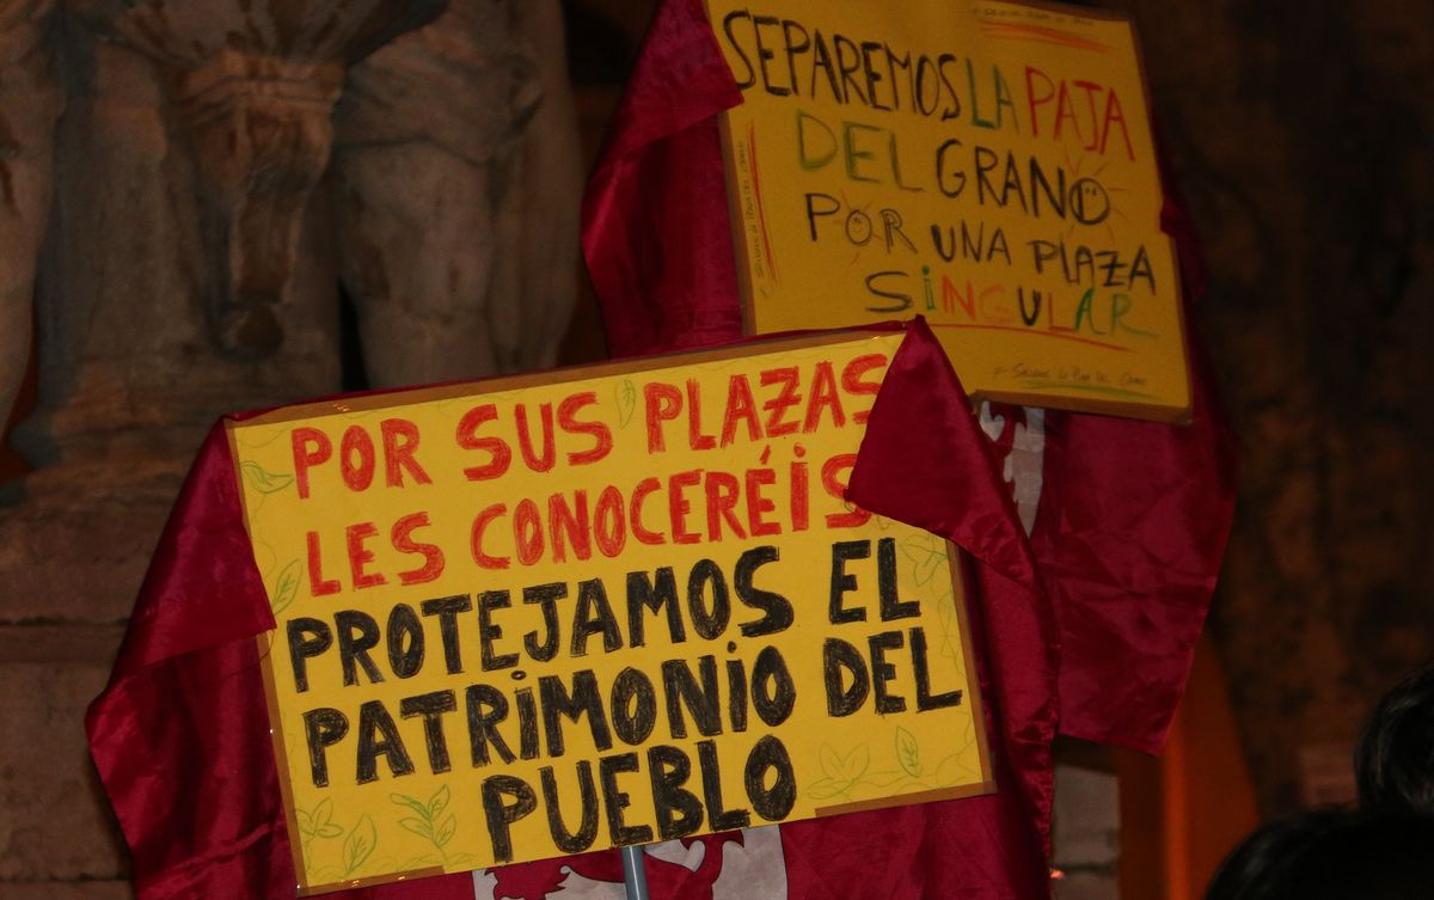 SEPAREMOS LA PAJA
DEL GRANO
POR UNA PLAZA
SiNGULAR
POR SUS PLAZAS
LES CONOCERÉiS
PROTEJAMOS EL
PATRiMONiO DEL
PUEBLO